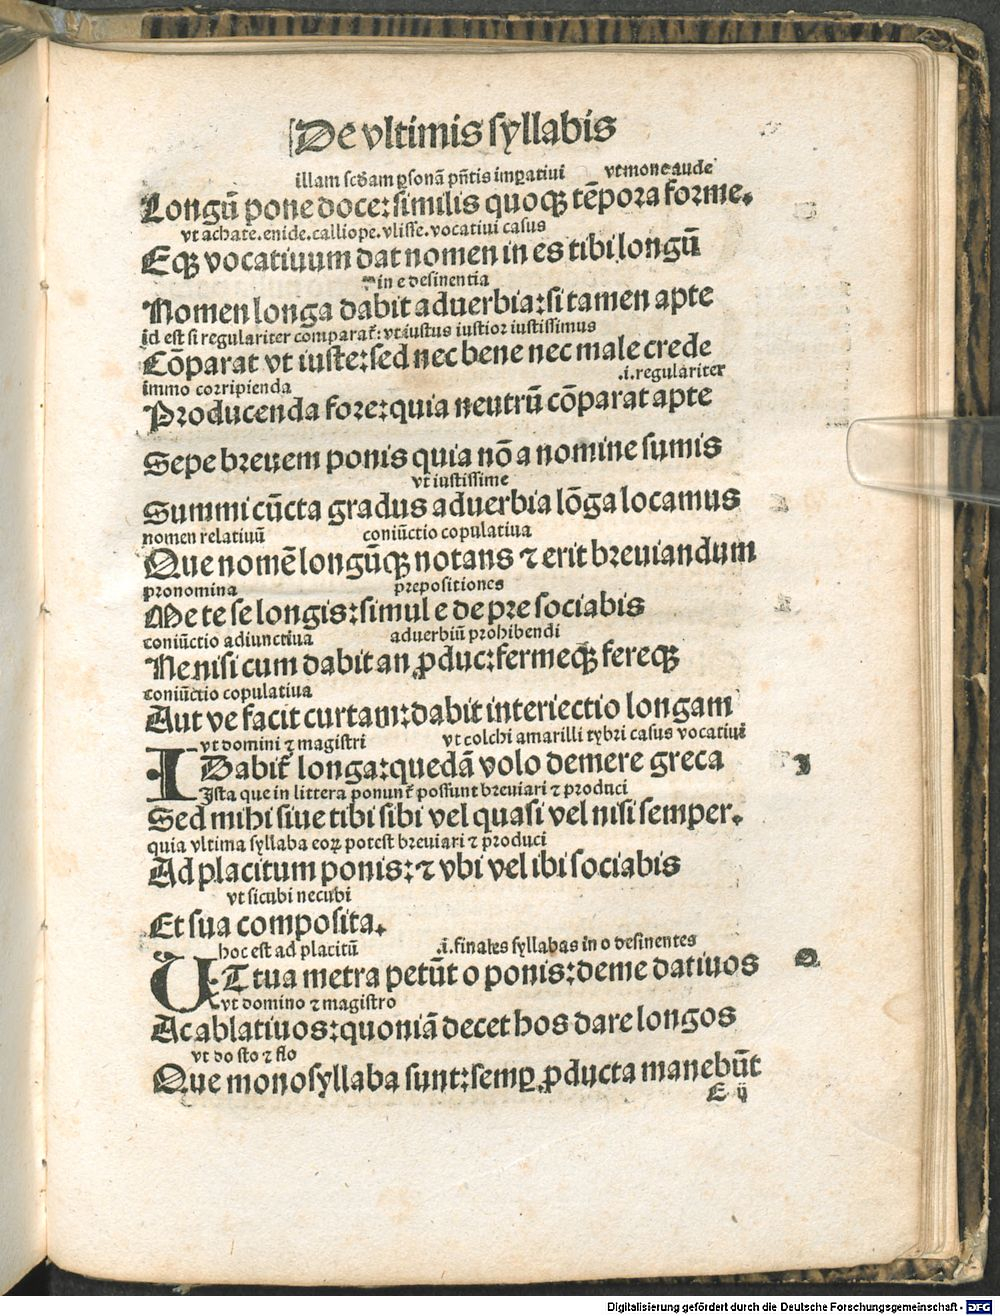 De vltimis syllabis
illam scđam ꝑsonā pn̄tis imꝑatiui vt mone aude
Longū pone doce: similis quoqꝫ tēpora forme.
vt achate. enide. calliope. vlisse. vocatiui casus
Eqꝫ vocatiuum dat nomen in es tibi longū
in e desinentia
Nomen longa dabit aduerbia: si tamen apte
id est si regulariter comparat᷑: vt iustus iustior iustissimus
Cōparat vt iuste: sed nec bene nec male crede
immo corripienda .i. regulariter
Producenda fore: quia neutrū cōparat apte
Sepe breuem ponis quia nō a nomine sumis
vt iustissime
Summi cūcta gradus aduerbia lōga locamus
nomen relatiuū coniūctio copulatiua
Que nomē longūqꝫ notans ⁊ erit breuiandum
pronomina prepositiones
Me te se longis: simul e de pre sociabis
coniūctio adiunctiua aduerbiū prohibendi
Ne nisi cum dabit an ꝓduc: fermeqꝫ fereqꝫ
coniūctio copulatiua
Aut ve facit curtam: dabit interiectio longam
vt domini ⁊ magistri vt colchi amarilli tybri casus vocatiui
I Dabit᷑ longa: quedā volo demere greca
Ista que in littera ponunt᷑ possunt breuiari ⁊ produci
Sed mihi siue tibi sibi vel quasi vel nisi semper.
quia vltima syllaba eoꝝ potest breuiari ⁊ produci
Ad placitum ponis: ⁊ vbi vel ibi sociabis
vt sicubi necubi
Et sua composita.
hoc est ad placitū .i. finales syllabas in o desinentes
UT tua metra petūt o ponis: deme datiuos
vt domino ⁊ magistro
Ac ablatiuos: quoniā decet hos dare longos
vt do sto ⁊ flo
Que monosyllaba sunt: semꝑ ꝓducta manebūt
E ij
I
O
Digitalisierung gefördert durch die Deutsche Forschungsgemeinschaft - DFG